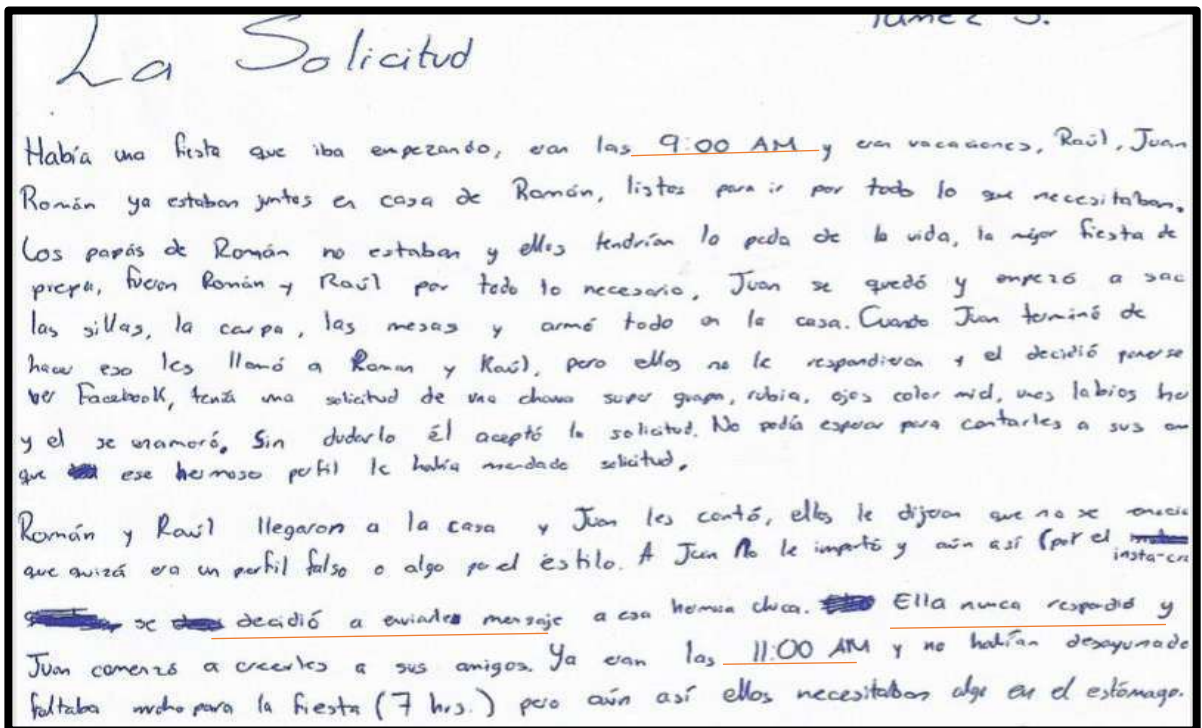 Tamez S.
La Solicitud
Había una fiesta que iba empezando, eran las 9:00 AM y eran vacaciones, Raúl, Juan
Román ya estaban juntos en casa de Román, listos para ir por todo lo que necesitaban.
Los papás de Román no estaban y ellos tendrían la peda de la vida, la mejor fiesta de
prepa, fueron Román y Raúl por todo lo necesario, Juan se quedó y empezó a sac
las sillas, la carpa, las mesas y armó todo en la casa. Cuando Juan terminó de
hacer eso les llamó a Roman y Raúl, pero ellos no le respondieron y el decidió ponerse
ver Facebook, tenía una solicitud de una chava super guapa, rubia, ojos color miel, unos labios her
y el se enamoró. Sin dudarlo él aceptó la solicitud. No podía esperar para contarles a sus am
que ese hermoso perfil le había mandado solicitud.
Román y Raúl llegaron a la casa y Juan les contó, ellos le dijeron que no se
que quizá era un perfil falso o algo por el estilo. A Juan no le importó y aún así (por el
insta-
se decidió a enviarles mensaje a esa hermosa chica. Ella nunca respondió y
Juan comenzó a creerles a sus amigos. Ya eran las 11:00 AM y no habían desayunado
faltaba mucho para la fiesta (7 hrs.) pero aún así ellos necesitaban algo en el estómago.